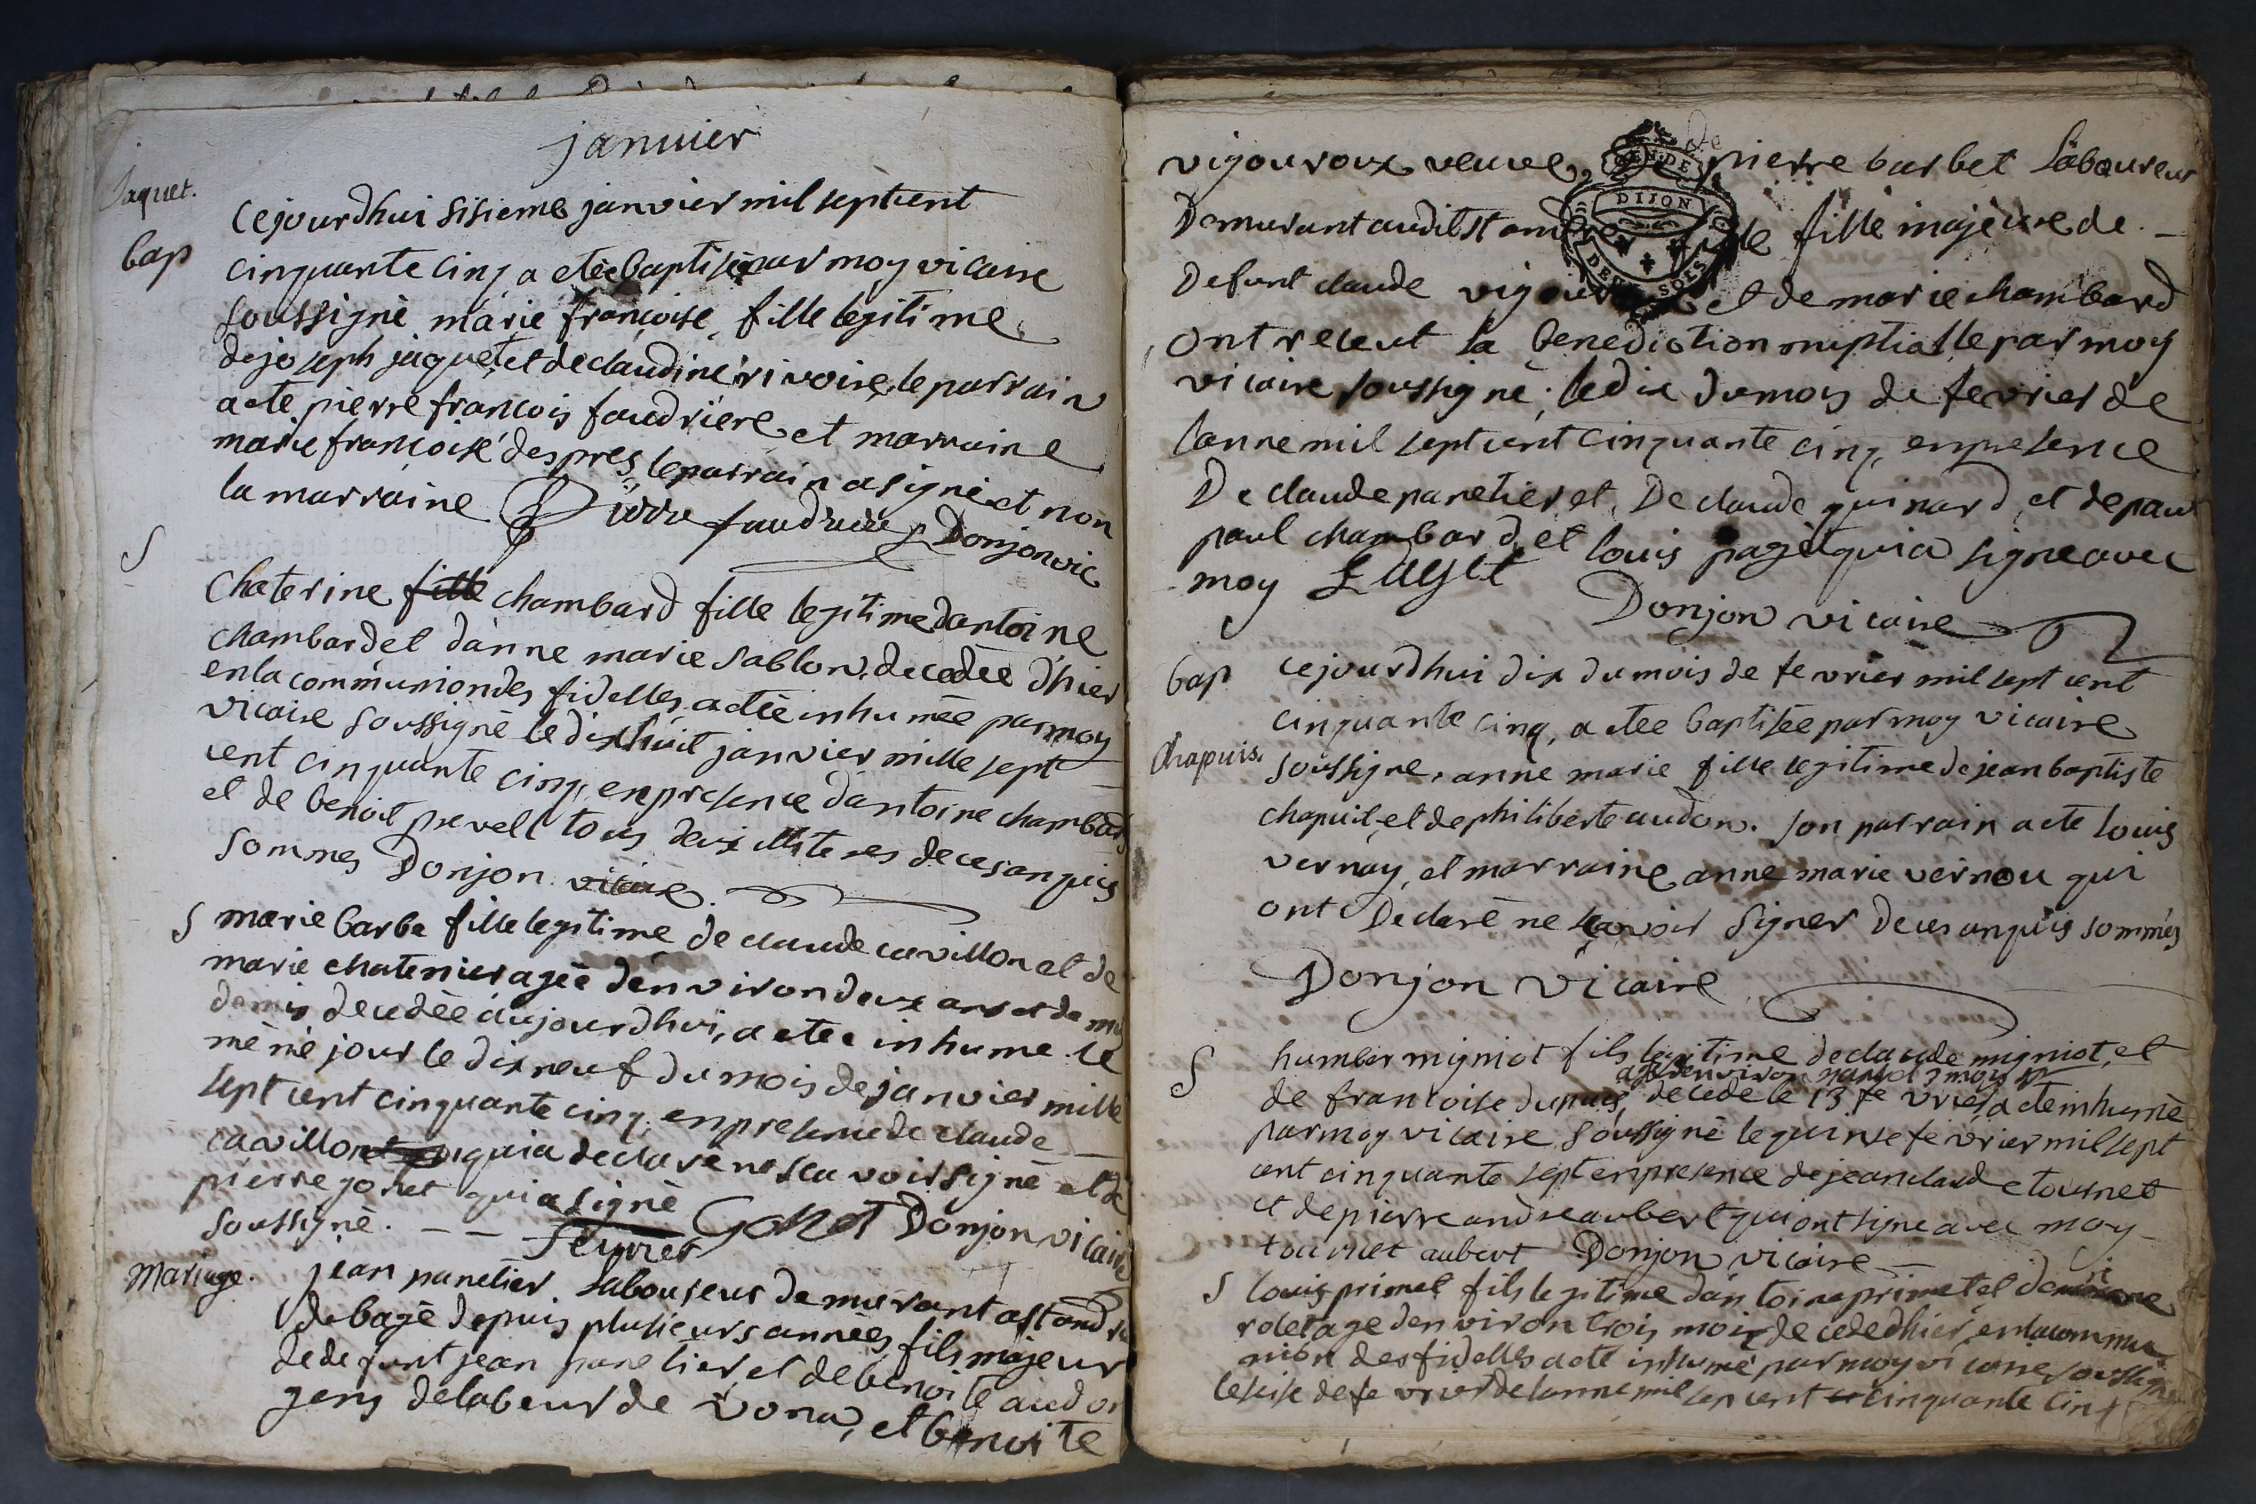 janvier
Jaquet.
bap
Cejourdhui sisieme janvier mil septcent
cinquante cinq a eteé baptiséé par moy vicaire
soussigné marie françoise fille legitime
de joseph jaquet, et de claudine rivoire, le parrain
a eté pierre francois faudriere et marraine
marie francoise despres, le parrain a signé et non
la marraine Pierre faudriere Donjon vic
S
Chaterine fille chambard fille legitime dantoine
chambard et danne marie sablon, decedée d'hier
en la communion des fidelles a etée inhumée par moy
vicaire soussigné le dixhuit janvier mille sept
cent cinquante cinq, en presence dantoine chambard
et de benoit prevel tous deux de ces anquis
sommes Donjon vicaire
S marie barbe fille legitime de claude cavillon et de
marie chatenier agée denviron deux ans et demi
demis decedée aujourdhui, a etee inhume le
même jour le dix neuf du mois de janvier mille
sept cent cinquante cinq, en presence de claude
cavillon qui a declare ne scavoir signé et de
pierre gonet qui a signé
soussigné. Gonet Donjon vicaire
fevrier
Mariage. jean panetier laboureur demeurant a st andré
de bagé depuis plusieurs années, fils majeur
de defunt jean panetier, et de benoite audon
gens de labeur de vona, et benoite
vigouroux veuve de pierre barbet laboureur
GEN. DE
DIJON
DEUX SOLS
Demurant audit st andre fille majeure de
Defunt claude vigouroux et de marie chambard
ont receut la benediction nuptialle par moy
vicaire soussigné, le dix du mois de fevrier de
lanne mil sept cent cinquante cinq, en presence
De claude panetier et De claude guinard, et de paul
paul chambard, et louis paget qui a signe avec
moy L paget Donjon vicaire
bap
Cejourdhui dix du mois de fevrier mil sept cent
cinquante cinq, a etee baptisée par moy vicaire
Chapuis.
soussigne, anne marie fille legitime de jean baptiste
chapuis et de philiberte audon. son parrain a ete louis
vernay, et marraine anne marie vernou qui
ont Declaré ne scavoir signer de ces anquis sommés
Donjon vicaire
S
humber migniot fils legitime de claude migniot, et
agé denviron mois
de francoise dupuis, decede le 13 fevrier, a ete inhumé
par moy vicaire soussigné le quinse fevrier mil sept
cent cinquante sept en presence de jean claude tournet
et de pierre andre aubert qui ont signe avec moy
tournet aubert Donjon vicaire
S louis primet fils legitime dantoine primet et de
rolet age denviron trois mois decede dhier, en la commu
nion des fidelles a ete inhumé par moy vicaire soussigné
le seise de fevrier de lanne mil sep cent cinquante cinq